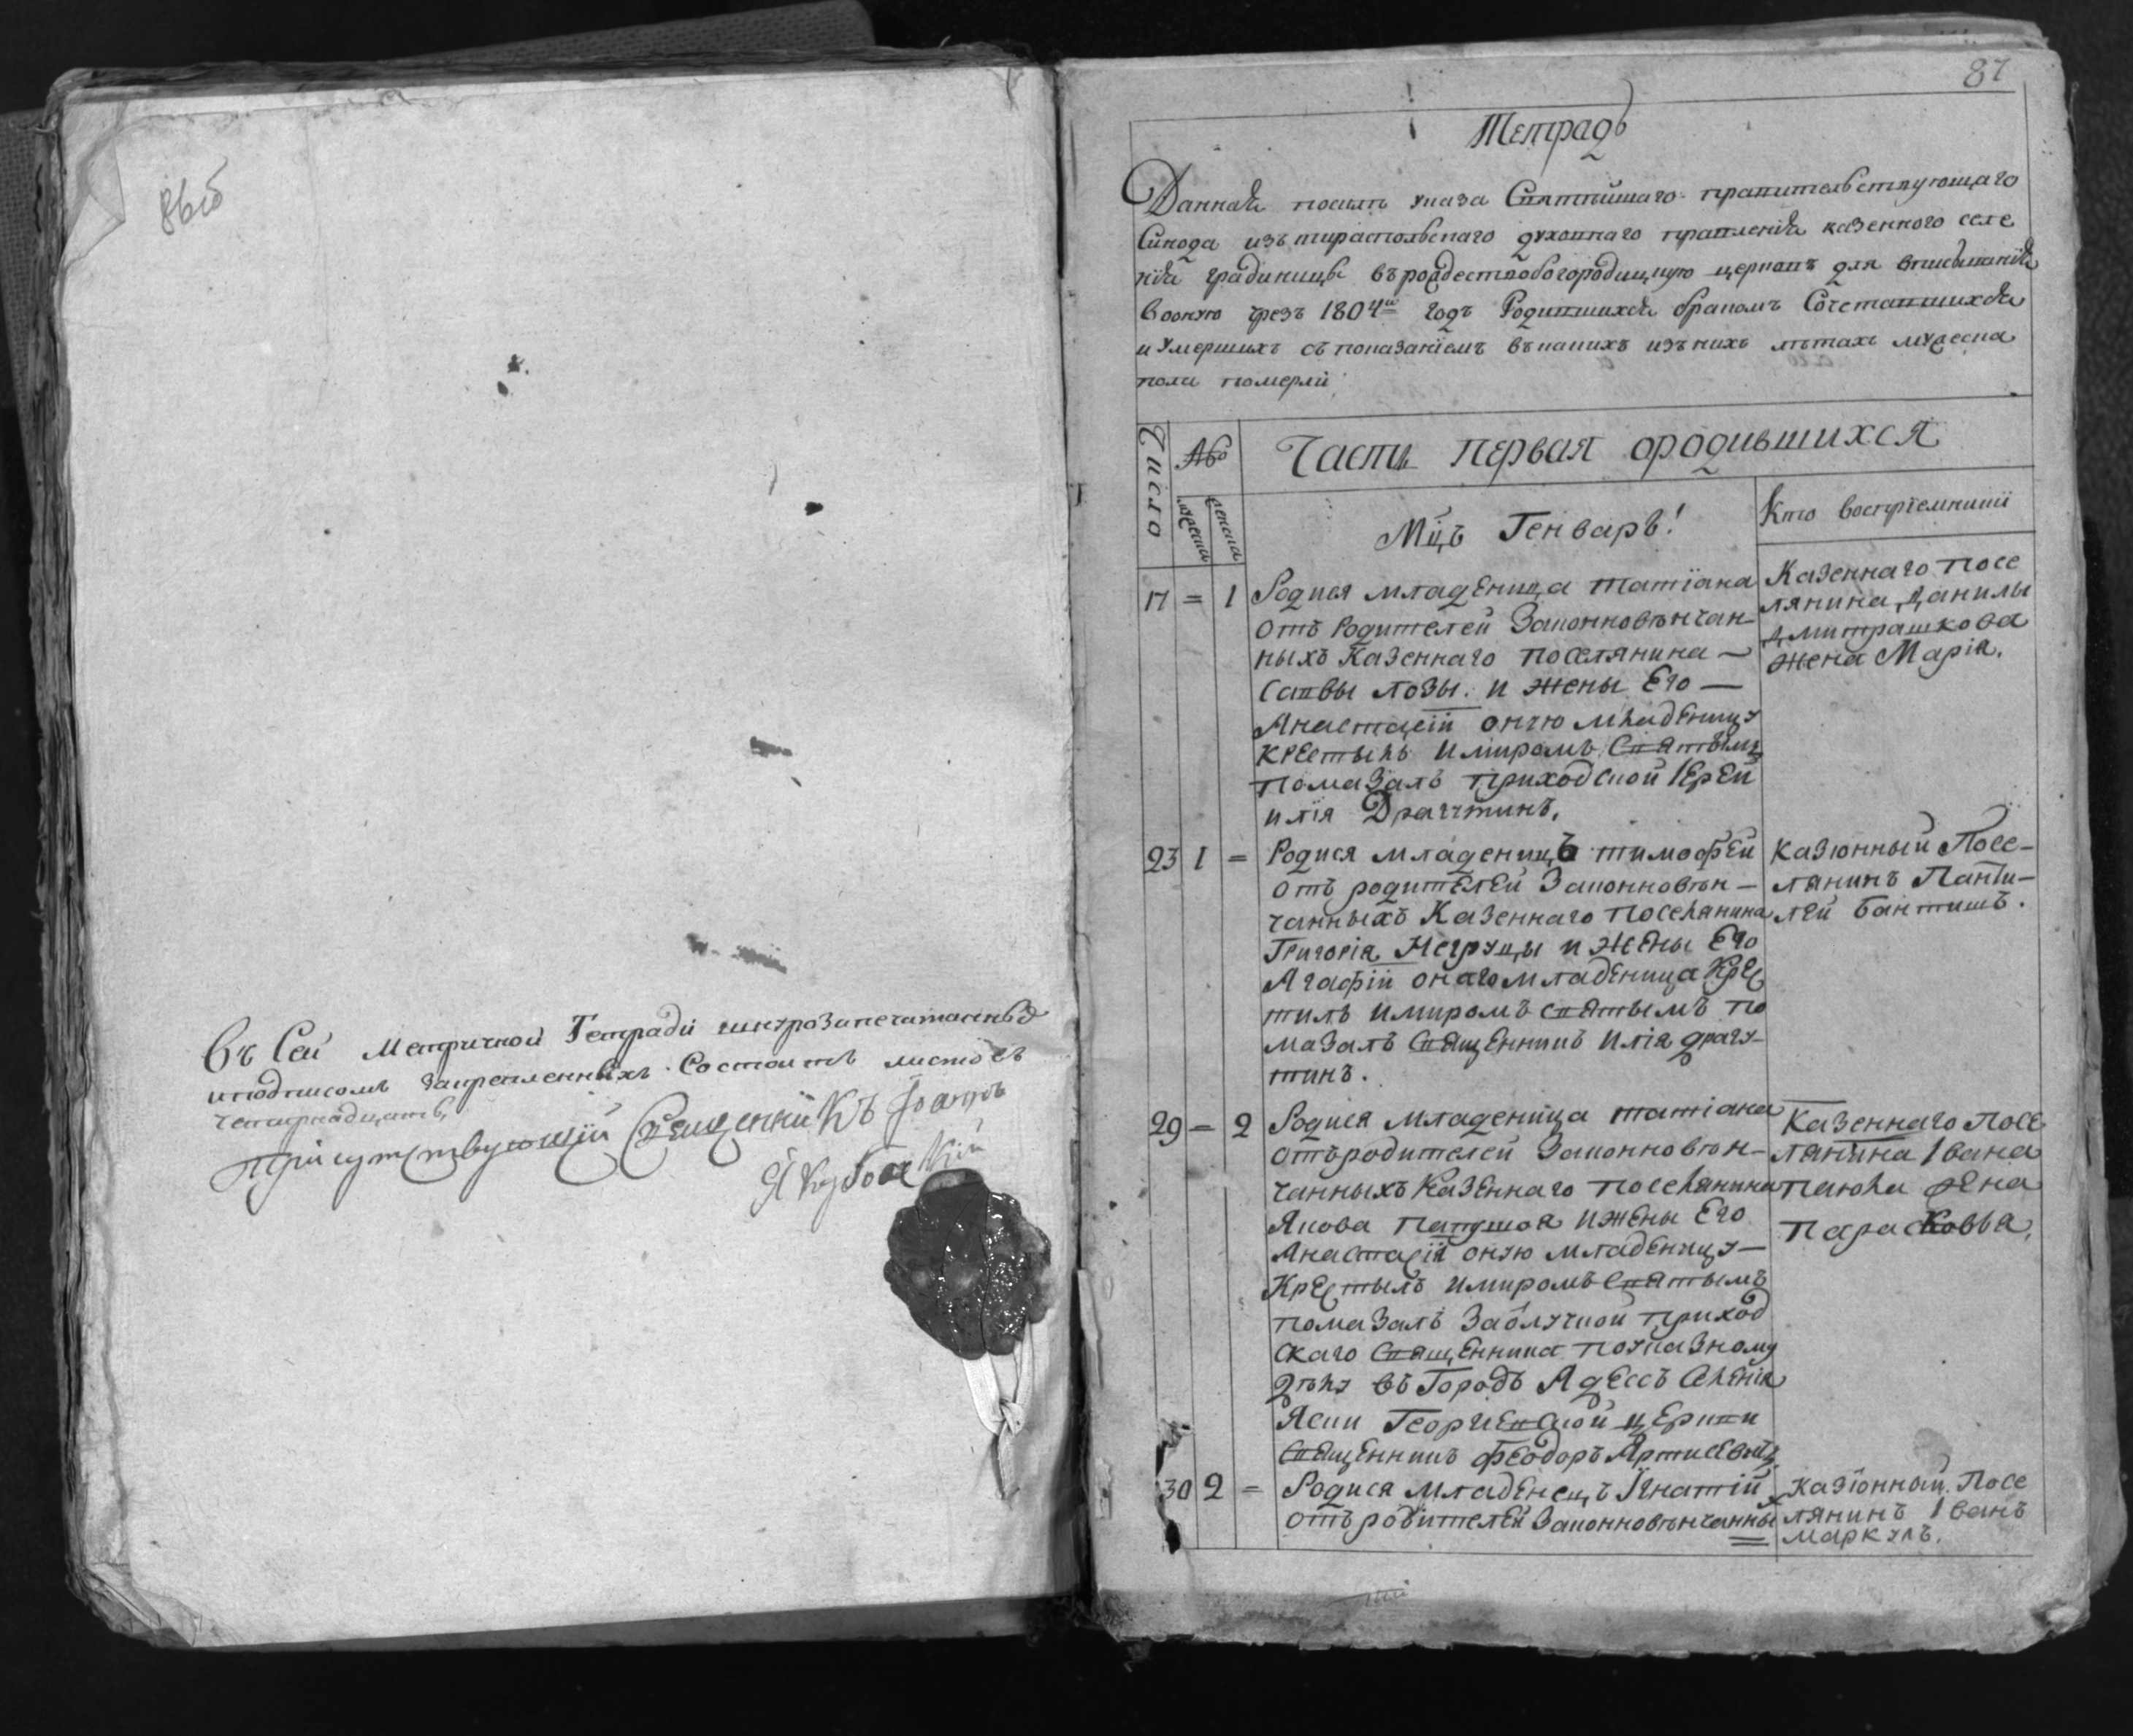 86об
Въ Сей Метричной Тетради шнурозапечатанныхъ
иподписомъ закрепленныхъ Состоитъ листовъ
четырнадцать
Присутствующій Священникъ Іоаннъ
Якубовскій
87
Тетрадь
Данная посилѣ указа Святѣйшаго правительствующаго
Синода изъ тираспольскаго духовнаго правленія казенного селе
нія градиницѣ въ рождествобогородицкую церковь для вписыванія
вооную чрезъ 1804й годъ Родившихся бракомъ Сочетавшихся
и Умершихъ съ показаніемъ въ какихъ изъ нихъ лѣтахъ мужеска
пола померли
Число
мужеска
женска
Часть первая ородившихся
Мцъ Генварь!
Кто воспріемники
17 = 1 Родися младеница Татіана
отъ Родителей Законновѣнчан-
ныхъ Казеннаго поселянина —
Саввы лозы. и жены Его —
Анастасіи оную младеницу
крестылъ имиромъ Святымъ
помазалъ приходской Іерей
илія Драгутинъ.
Казеннаго посе
лянина Данилы
Дмитрашкова
жена Марія.
23 1 = Родися младеницъ тимофей
отъ родителей Законновѣн-
чанныхъ Казеннаго поселянина
Григорія Негруцы и жены Его
Агафіи онаго младеница Крес
тилъ имиромъ святымъ по
мазалъ Священникъ Илія драгу-
тинъ.
казіонный Посе-
лянинъ Панти-
лей Бантишъ.
29 = 2 Родися младеница татіана
отъ родителей Законновѣн-
чанныхъ Казеннаго поселянина
Якова Папушоя и жены Его
Анастасіи оную младеницу —
Крестылъ имиромъ Святымъ
помазалъ Заотлучкой приход
скаго Священника по указному
дѣлу въ Городъ Адессъ Селенія
Яски Георгіевской церкви
Священникъ Феодоръ
Казеннаго Посе
лянина Ивана
жена
Парасковья.
30 2 = Родися младенецъ Игнатій
отъ родителей Законновѣнчанны
казіонный Посе
лянинъ Іванъ
Маркулъ.